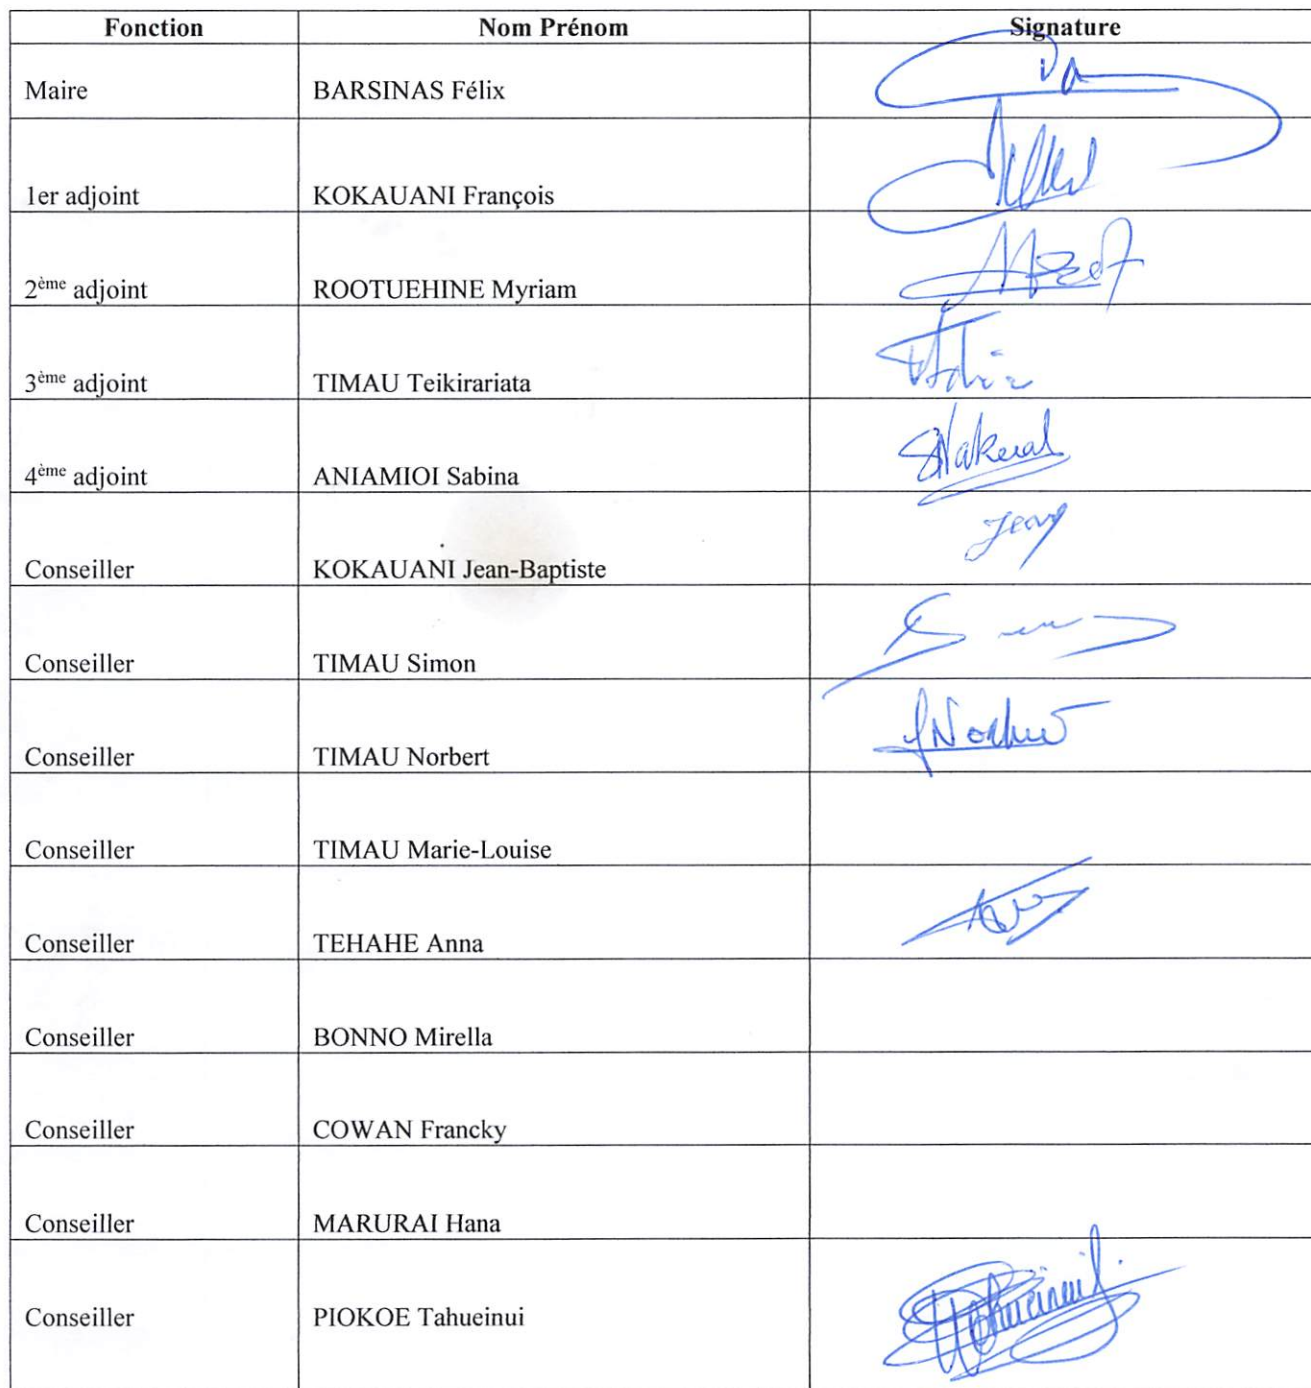 Fonction Nom Prénom Signature
Maire BARSINAS Félix
1er adjoint KOKAUANI François
2ème adjoint ROOTUEHINE Myriam
3ème adjoint TIMAU Teikirariata
4ème adjoint ANIAMIOI Sabina
Conseiller KOKAUANI Jean-Baptiste
Conseiller TIMAU Simon
Conseiller TIMAU Norbert
Conseiller TIMAU Marie-Louise
Conseiller TEHAHE Anna
Conseiller BONNO Mirella
Conseiller COWAN Francky
Conseiller MARURAI Hana
Conseiller PIOKOE Tahueinui